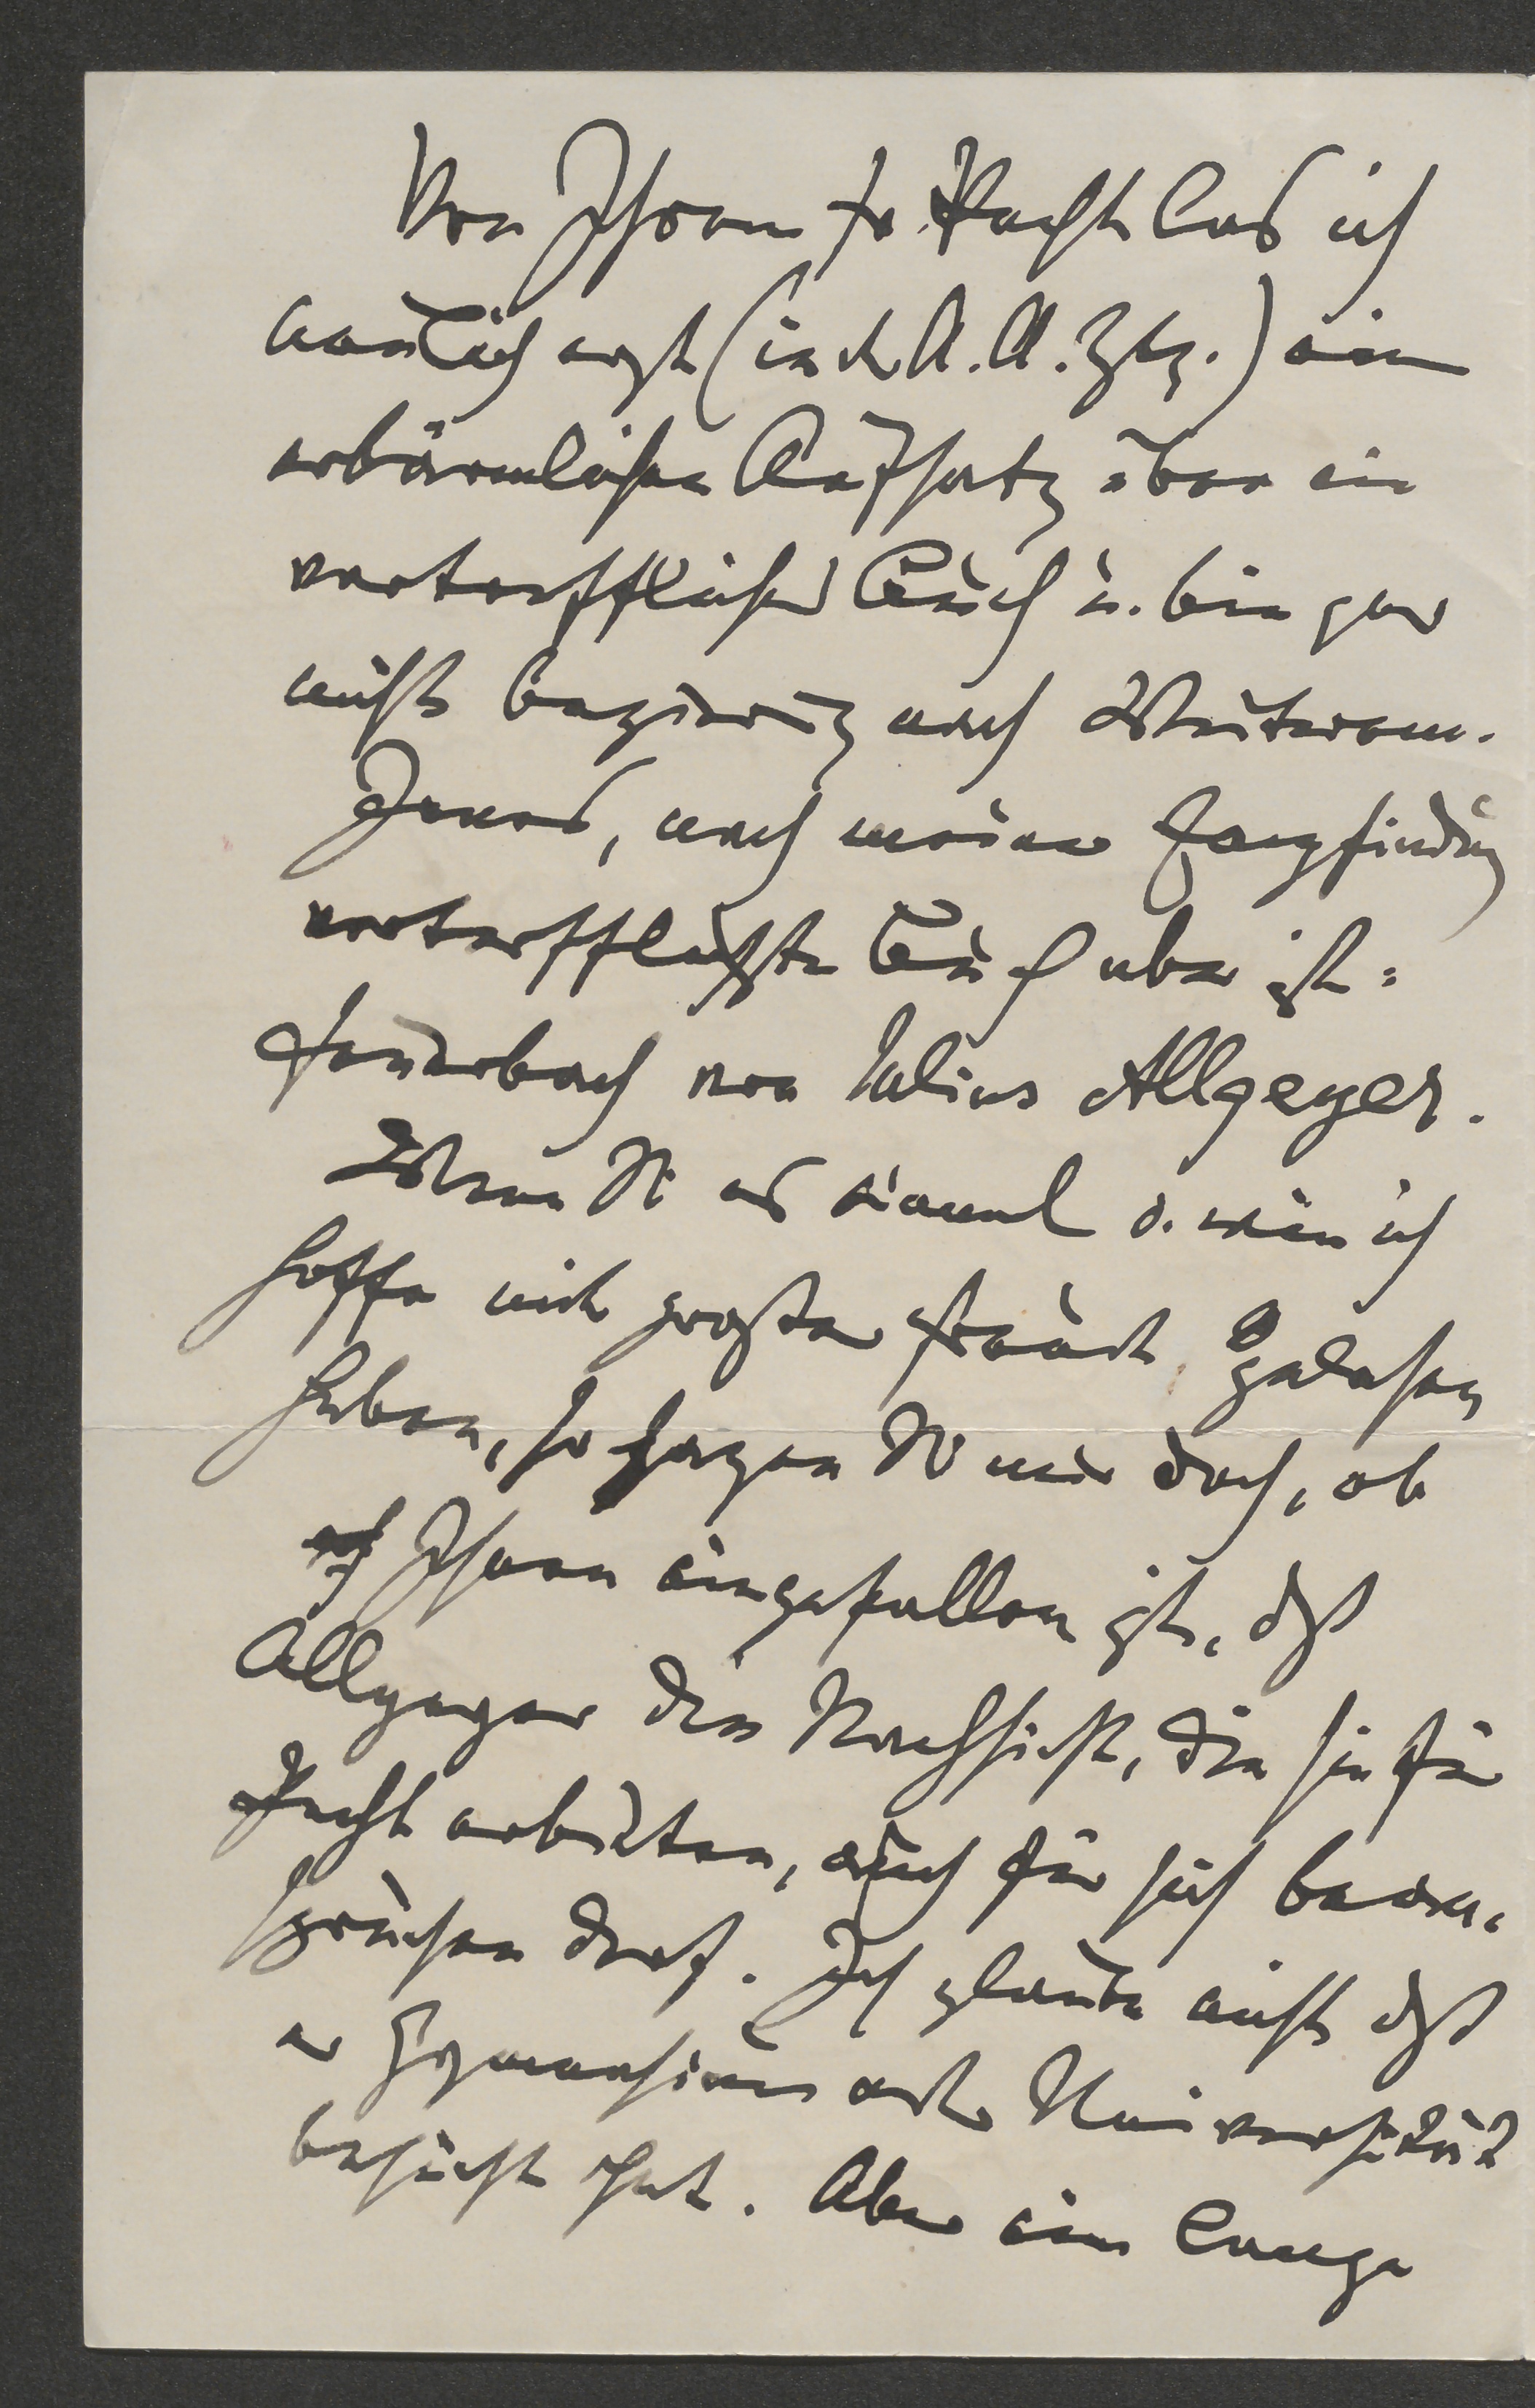 Von Ihrem Fr. Hecht las ich
neulich erst (in der A. A. Ztg.) einen
erbärmlichen Aufsatz über ein
vortreffliches Buch u. bin gar
nicht begierig nach Weiterem.
Jenes, nach meiner Empfindung
vortrefflichste Buch aber ist:
Feuerbach von Julius Allgeyer.
Wenn Sie es einmal u. wie ich
hoffe mit großer Freude gelesen
haben, so sagen Sie mir doch, ob
Ihnen eingefallen ist, daß
Allgeyer die Nachsicht, die Sie für
Hecht erbitten, auch für sich bean-
spruchen darf. Ich glaube nicht daß
er Gymnasium oder Universität
besucht hat. Aber ein langes